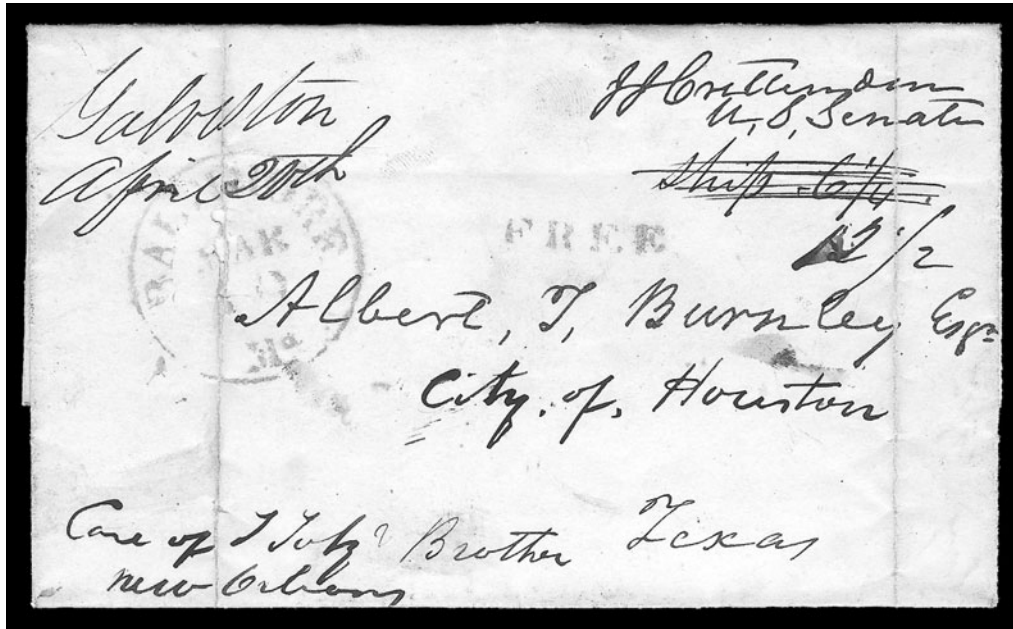 Galveston
April 20th
J J Crittenden
U, S, Senator
Ship 6¼
12 1/2
FREE
BALTIMORE
MAR
Md
Albert, T, Burnley Esqr
City. of. Houston
Texas
Care of T Toby & Brother
New Orleans